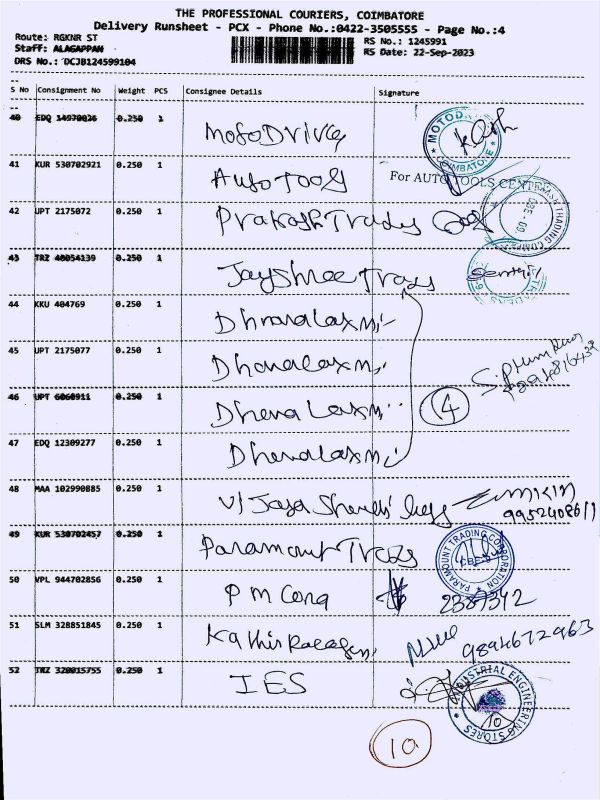 THE PROFESSIONAL COURIERS, COIMBATORE
Delivery Runsheet - PCX - Phone No.:0422-3505555 - Page No.:4
Route: RGKNR ST
RS No.: 1245991
Staff: ALAGAPPAN
RS Date: 22-Sep-2023
DRS No.: DCJB124599104
S No Consignment No Weight PCS Consignee Details Signature
40 EDQ 14970026 0.250 1 MotoDrive MOTOD COIMBATORE
41 KUR 530702921 0.250 1 Auto Tools For AUTO TOOLS CENTER
42 UPT 2175072 0.250 1 Prakash Traders TRADING
43 TRZ 40054139 0.250 1 Jayshree Traders
44 KKU 404769 0.250 1 Dhanalaxmi
45 UPT 2175077 0.250 1 Dhanalaxmi
46 UPT 6060911 0.250 1 Dhana Laxmi 4
47 EDQ 12309277 0.250 1 Dhanalaxmi
48 MAA 102990885 0.250 1
49 KUR 530702457 0.250 1 Paramount PARAMOUNT TRADING CORPORATION
50 VPL 944702856 0.250 1 PM 
51 SLM 328851845 0.250 1 9894672963
52 TRZ 320015755 0.250 1 IES INDUSTRIAL ENGINEERING STORES
10